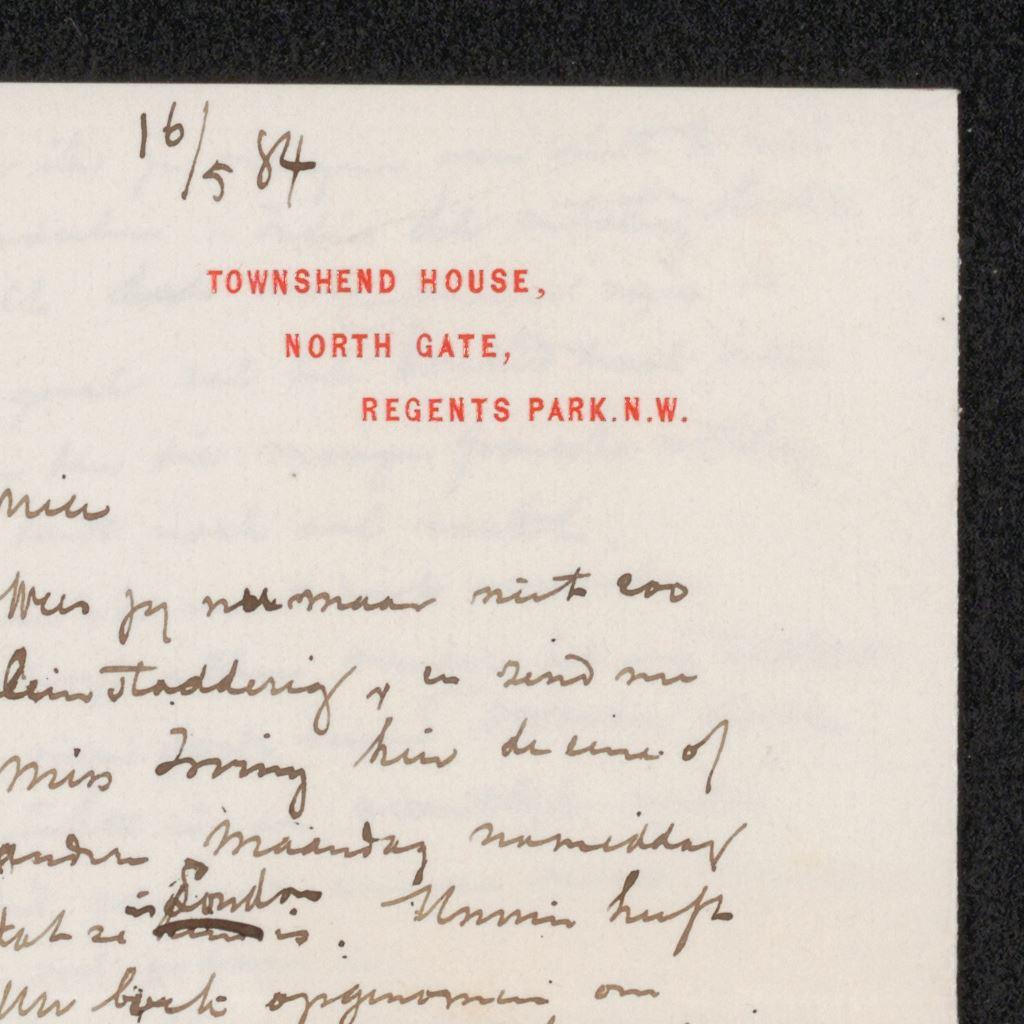 16/5 84
TOWNSHEND HOUSE,
NORTH GATE,
REGENTS PARK.N.W.
Wees jy nu maar niet zoo
klein stadderig, en zend me
Miss Irving hier de eene of
andere Maandag namiddag
tat ze in London is. heeft
boek opgenomen om